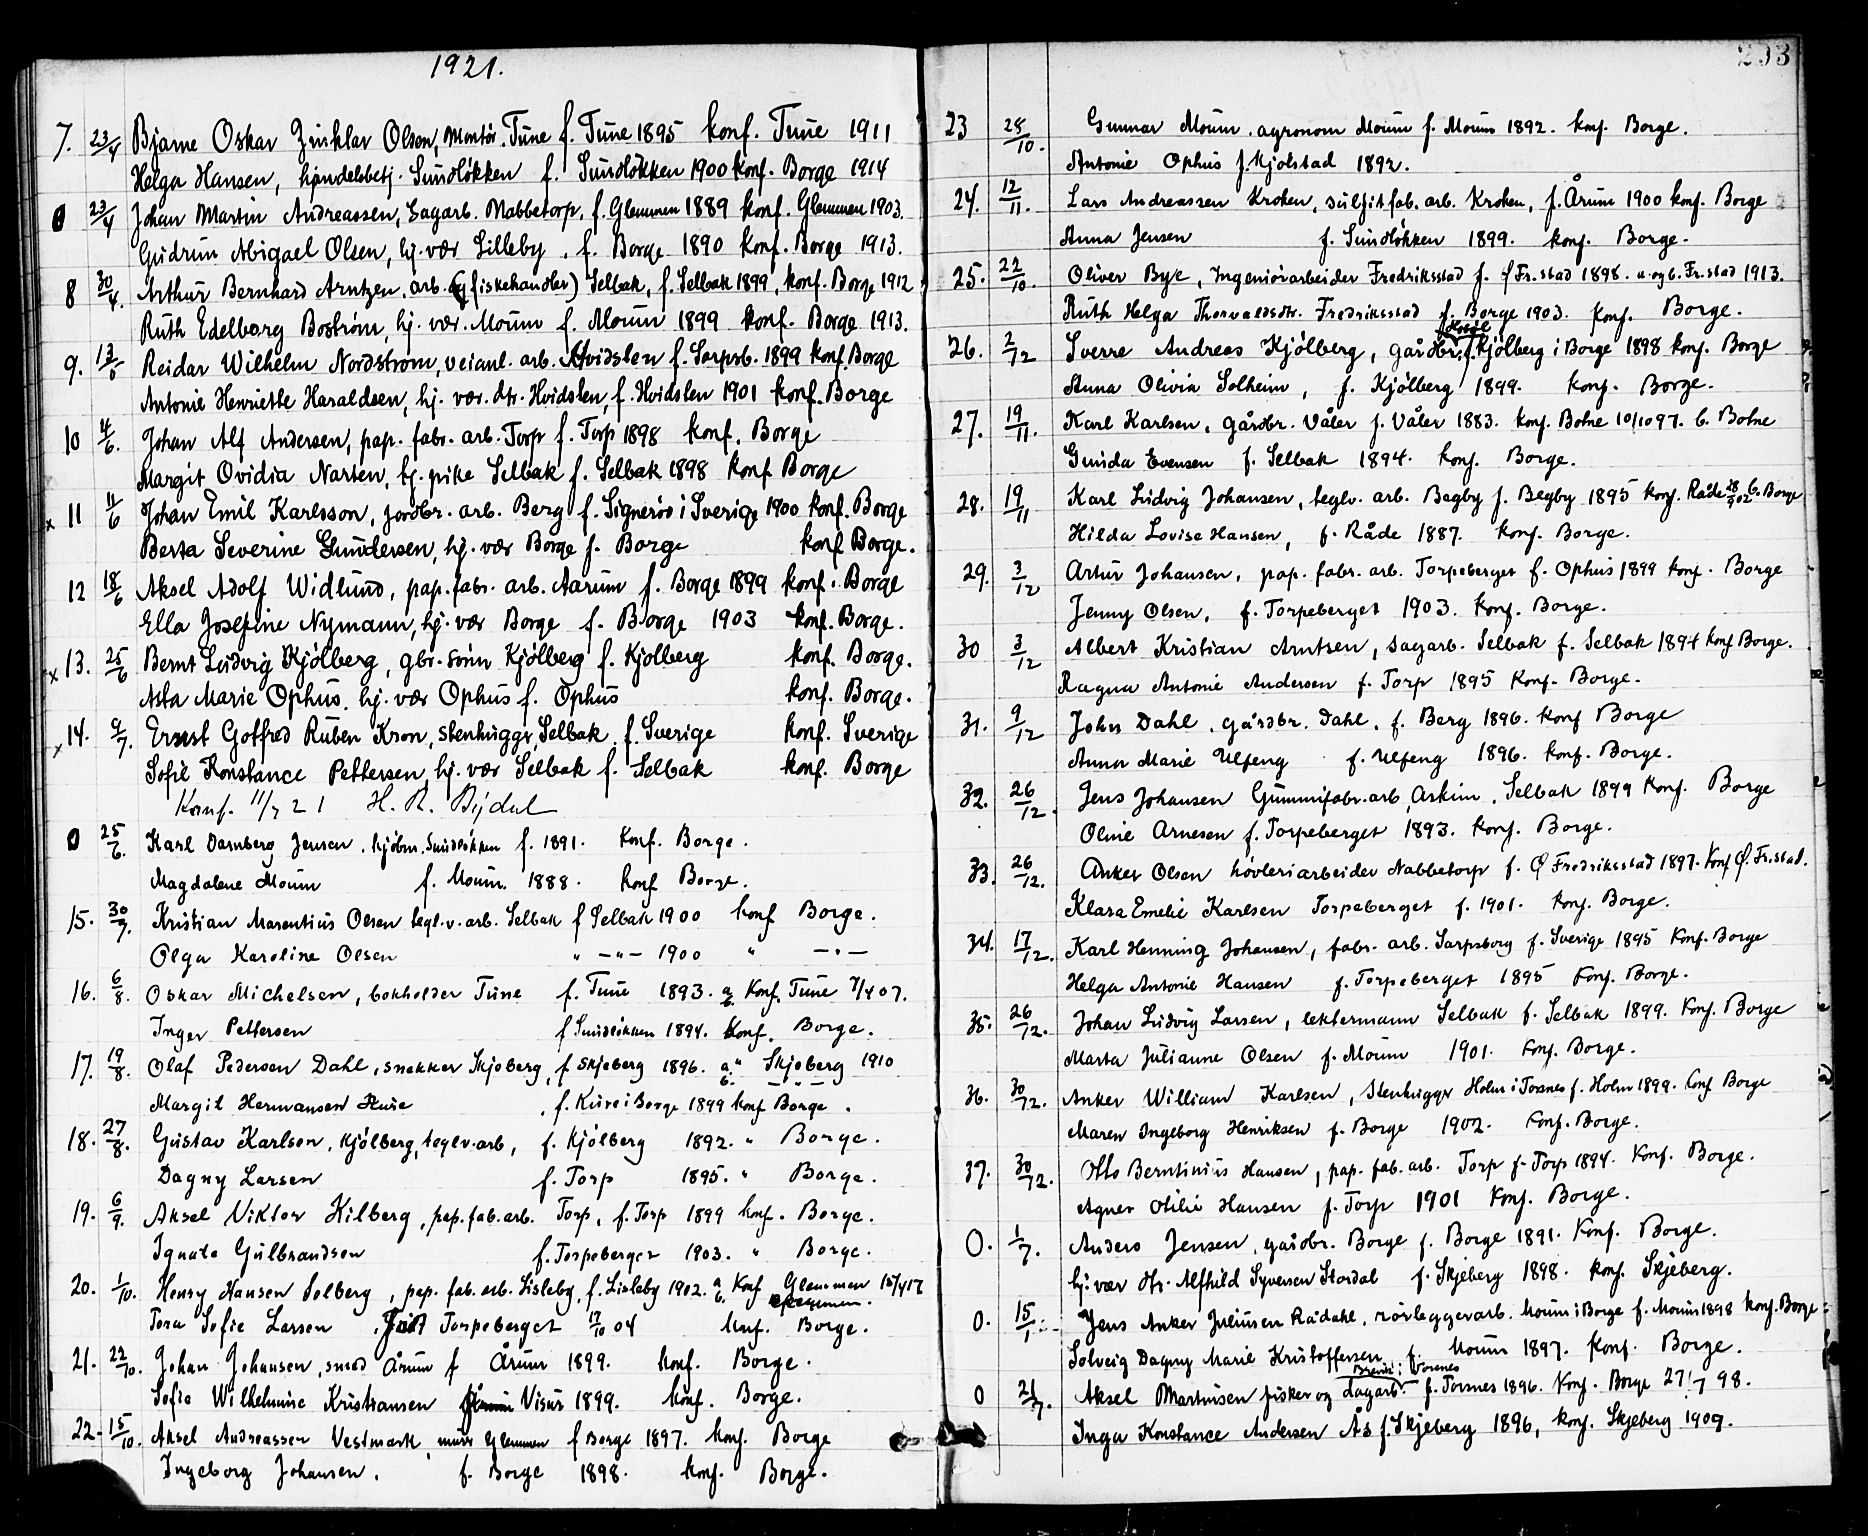 1921.
7. 23/4 Bjarne Oskar Zinklar Olsen, Montör. Tune f. Tune 1895 konf. Tune 1911
Helga Hansen, handelsbetj. Sundløkken f. Sundløkken 1900 konf. Borge 1914
0 23/4 Johan Martin Andreassen, Sagarb. Nabbetorp, f. Glemmen 1889 konf. Glemmen 1903.
Gudrun Abigael Olsen, hj. vær Lilleby. f. Borge 1890 konf. Borge 1913.
8 30/4. Arthur Bernhard Arntzen, arb. (og fiskehandler) Selbak, f. Selbak 1899, konf. Borge 1912
Ruth Edelborg Boström, hj. vær. Moum f. Moum 1899 konf. Borge 1913.
9. 13/6 Reidar Wilhelm Nordström, veianl. arb. Hvidsten f. Sarpsb. 1899 konf. Borge
Antonie Henriette Haraldsen, hj. vær. dtr. Hvidsten, f. Hvidsten 1901 konf. Borge
10 4/6. Johan Alf Andersen, pap. fabr. arb. Torp f. Torp 1898 konf. Borge
Margit Ovidia Narten, tj. pike Selbak f. Selbak 1898 konf Borge
x 11 11/6 Johan Emil Karlsson, jordbr. arb. Berg f. Signeröd i Sverige 1900 konf. Borge
Berta Severine Gundersen, hj. vær Borge f. Borge konf Borge.
12 18/6 Aksel Adolf Widlund, pap. fabr. arb. Aarum f. Borge 1899 konf. Borge
Ella Josefine Nymann, hj. vær Borge f. Borge 1903 konf. Borge.
x 13. 25/6 Bernt Ludvig Kjölberg, gbr. sönn Kjölberg f. Kjölberg konf. Borge.
Asta Marie Ophus. hj. vær Ophus f. Ophus konf. Borge.
x 14. 9/7. Ernst Gotfred Ruben Kron, stenhugger, Selbak. f. Sverige konf. Sverige
Sofie Konstance Pettersen, hj. vær Selbak f. Selbak konf. Borge
Konf. 11/7 21 H. R.
0 25/6. Karl Damberg Jensen, kjöbm. Sundløkken f. 1891. konf. Borge.
Magdalene Moum f. Moum. 1888. konf Borge.
15. 30/7. Kristian Marentius Olsen tegl.v. arb. Selbak f Selbak 1900 konf Borge.
Olga Karoline Olsen " — " — 1900 " — " —
16. 6/8. Oskar Michelsen, bokholder Tune f. Tune 1893. Konf. Tune 7/4 07.
Inger Pettersen f Sundløkken 1894. konf. Borge.
17. 19/8. Olaf Pedersen Dahl, snekker Skjeberg, f skjeberg 1896. " Skjeberg 1910
Margit Hermansen Kure, f. Kure i Borge 1899 konf Borge.
18. 27/8. Gustav Karlsen, Kjölberg, teglv. arb, f. Kjölberg 1892. " Borge.
Dagny Larsen f. Torp 1895. " Borge.
19. 6/9. Aksel Viktor Hilberg, pap. fab. arb. Torp, f. Torp 1899 konf. Borge.
Ignata Gulbrandsen f. Torpeberget 1903. " Borge.
20. 1/10. Henry Hansen Solberg, pap. fab. arb. Lisleby, f. Lisleby 1902. Konf Glemmen 15/4 17
Tora Sofie Larsen, Torpeberget 17/10 04 konf. Borge.
21. 22/10. Johan Johansen, smed Årum f Årum 1899. konf. Borge.
Sofie Wilhelmine Kristiansen Visur 1899. konf. Borge.
22. 15/10. Aksel Andreassen Vestmark, murer Glemmen f Borge 1897. konf. Borge
Ingeborg Johansen. f. Borge 1898. konf. Borge.
293
23 28/10. Gunnar Moum, agronom Moum f. Moum 1892. konf. Borge.
Antonie Ophus f. Kjölstad 1892.
24. 12/11. Lars Andreassen Kroken, sulfitfab. arb. Kroken, f. Årum 1900 konf. Borge
Anna Jensen f. Sundløkken 1899. konf. Borge.
25. 22/10. Oliver Bye, Ingeniörarbeider Fredriksstad f. Fr.stad 1898. u. og b. Fr.stad 1913.
Ruth Helga Thorvaldsdtr. Fredriksstad f. Borge 1903. Konf. Borge.
26. 2/12 Sverre Andreas Kjölberg, gårdbr., f. Kjölberg i Borge 1898 konf. Borge
Anna Olivia Solheim, f. Kjölberg 1899. konf. Borge.
27. 19/11. Karl Karlsen, gårdbr. Våler f. Våler 1883. konf. Botne 10/10 97. b. Botne
Gunda Evensen f. Selbak 1894. konf. Borge.
28. 19/11 Karl Ludvig Johansen, teglv. arb. Begby f. Begby 1895 konf. Råde 28/9 02 b. Borge
Hilda Lovise Hansen, f. Råde 1887. konf. Borge.
29. 3/12 Artur Johansen, pap. fabr. arb. Torpeberget f. Ophus 1899 konf. Borge
Jenny Olsen, f. Torpeberget 1903. konf. Borge.
30 3/12 Albert Kristian Arntsen, sagarb. Selbak f. Selbak 1894 konf Borge.
Ragna Antonie Andersen f. Torp 1895 konf. Borge.
31. 9/12 John Dahl, gårdbr. Dahl, f. Berg 1896. konf Borge
Anna Marie Ulfeng f. Ulfeng 1896. konf. Borge.
32. 26/12. Jens Johansen Gummifabr. arb, Askim, Selbak 1899 konf. Borge
Oline Arnesen f. Torpeberget 1893. konf. Borge.
33. 26/12. Anker Olsen høvleriarbeider Nabbetorp f. Ø Fredriksstad 1897. Konf Ø. Fr.stad.
Klara Emelie Karlsen Torpeberget f. 1901. konf. Borge.
34. 17/12. Karl Henning Johansen, fabr. arb. Sarpsborg f. Sverige 1895 Konf. Borge
Helga Antonie Hansen f. Torpeberget 1895 konf. Borge.
35. 26/12. Johan Ludvig Larsen, lektermann Selbak f. Selbak 1899. Konf. Borge
Marta Julianne Olsen f. Moum 1901. konf. Borge.
36. 30/12. Anker William Karlsen, Stenhugger Holm i Torsnes f. Holm 1899. konf Borge
Maren Ingeborg Henriksen f. Borge 1902. konf. Borge.
37. 30/12. Otto Berntinius Hansen, pap. fab. arb. Torp f. Torp 1894. Konf. Borge.
Agnes Otilie Hansen f. Torp 1901 konf. Borge.
0. 1/7. Anders Jensen, gårdbr. Borge f. Borge 1891. Konf. Borge.
hj. vær dtr. Alfhild Syversen Stordal f. Skjeberg 1898. konf. Skjeberg.
0. 15/1 Jens Anker Juliussen Rådahl, rörleggerarb. Moum i Borge f. Moum 1898 konf. Borge
Solveig Dagny Marie Kristoffersen f. Moum 1897. konf. Borge.
Brevik i Torsnes
0 21/7. Aksel Martinsen fisker og dagarb. f. Torsnes 1896. Konf. Borge 27/7 98.
Inga Konstance Andersen Ås f. Skjeberg 1896, konf. Skjeberg 1909.